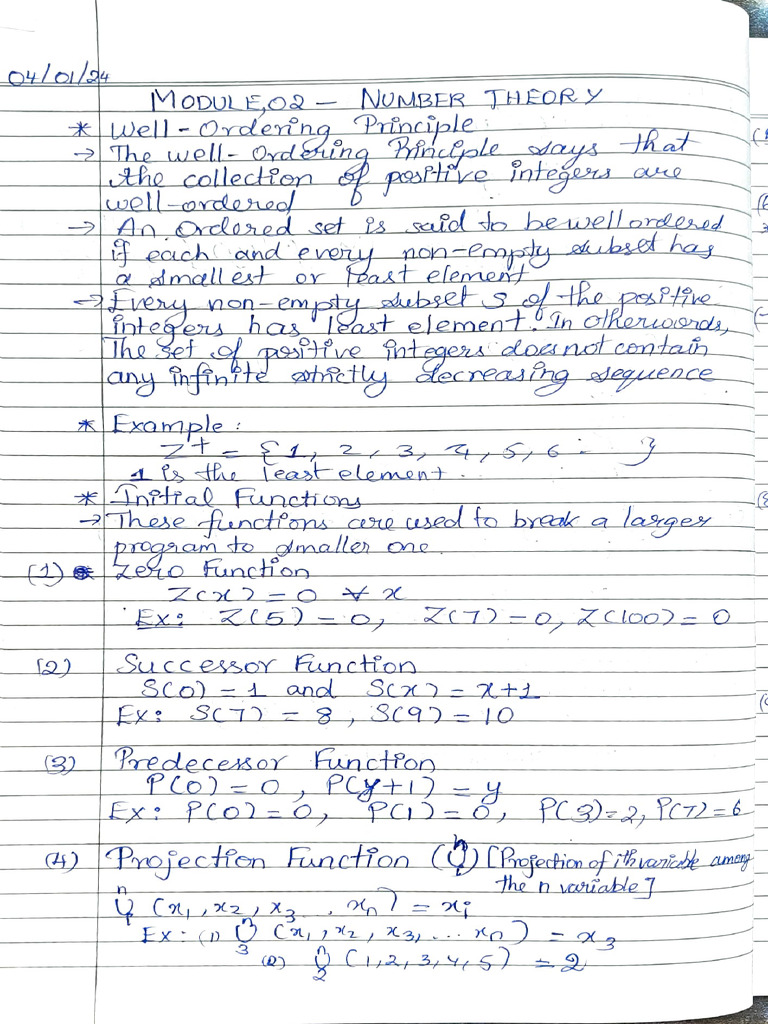 04/01/24
MODULE,02 – NUMBER THEORY
* Well-Ordering Principle
→ The well-Ordering Principle says that
the collection of positive integers are
well-ordered
→ An Ordered set is said to be well ordered
if each and every non-empty subset has
a smallest or least element
→ Every non-empty subset S of the positive
integers has least element. In otherwords,
The set of positive integers does not contain
any infinite strictly decreasing sequence
* Example :
Z+ = {1, 2, 3, 4, 5, 6 - }
1 is the least element.
* Initial Functions
→ These functions are used to break a larger
program to smaller one.
(1) Zero Function
Z(x) = 0 ∀ x
Ex: Z(5) = 0, Z(7) = 0, Z(100) = 0
(2) Successor Function
S(0) = 1 and S(x) = x+1
Ex: S(7) = 8, S(9) = 10
(3) Predecessor Function
P(0) = 0, P(y+1) = y
Ex: P(0) = 0, P(1) = 0, P(3) = 2, P(7) = 6
(4) Projection Function (Uᵢⁿ) [Projection of ith variable among
the n variable]
Uᵢⁿ (x₁, x₂, x₃ ... xₙ) = xᵢ
Ex: (1) U₃ⁿ (x₁, x₂, x₃, ... xₙ) = x₃
(2) U₂ⁿ (1, 2, 3, 4, 5) = 2